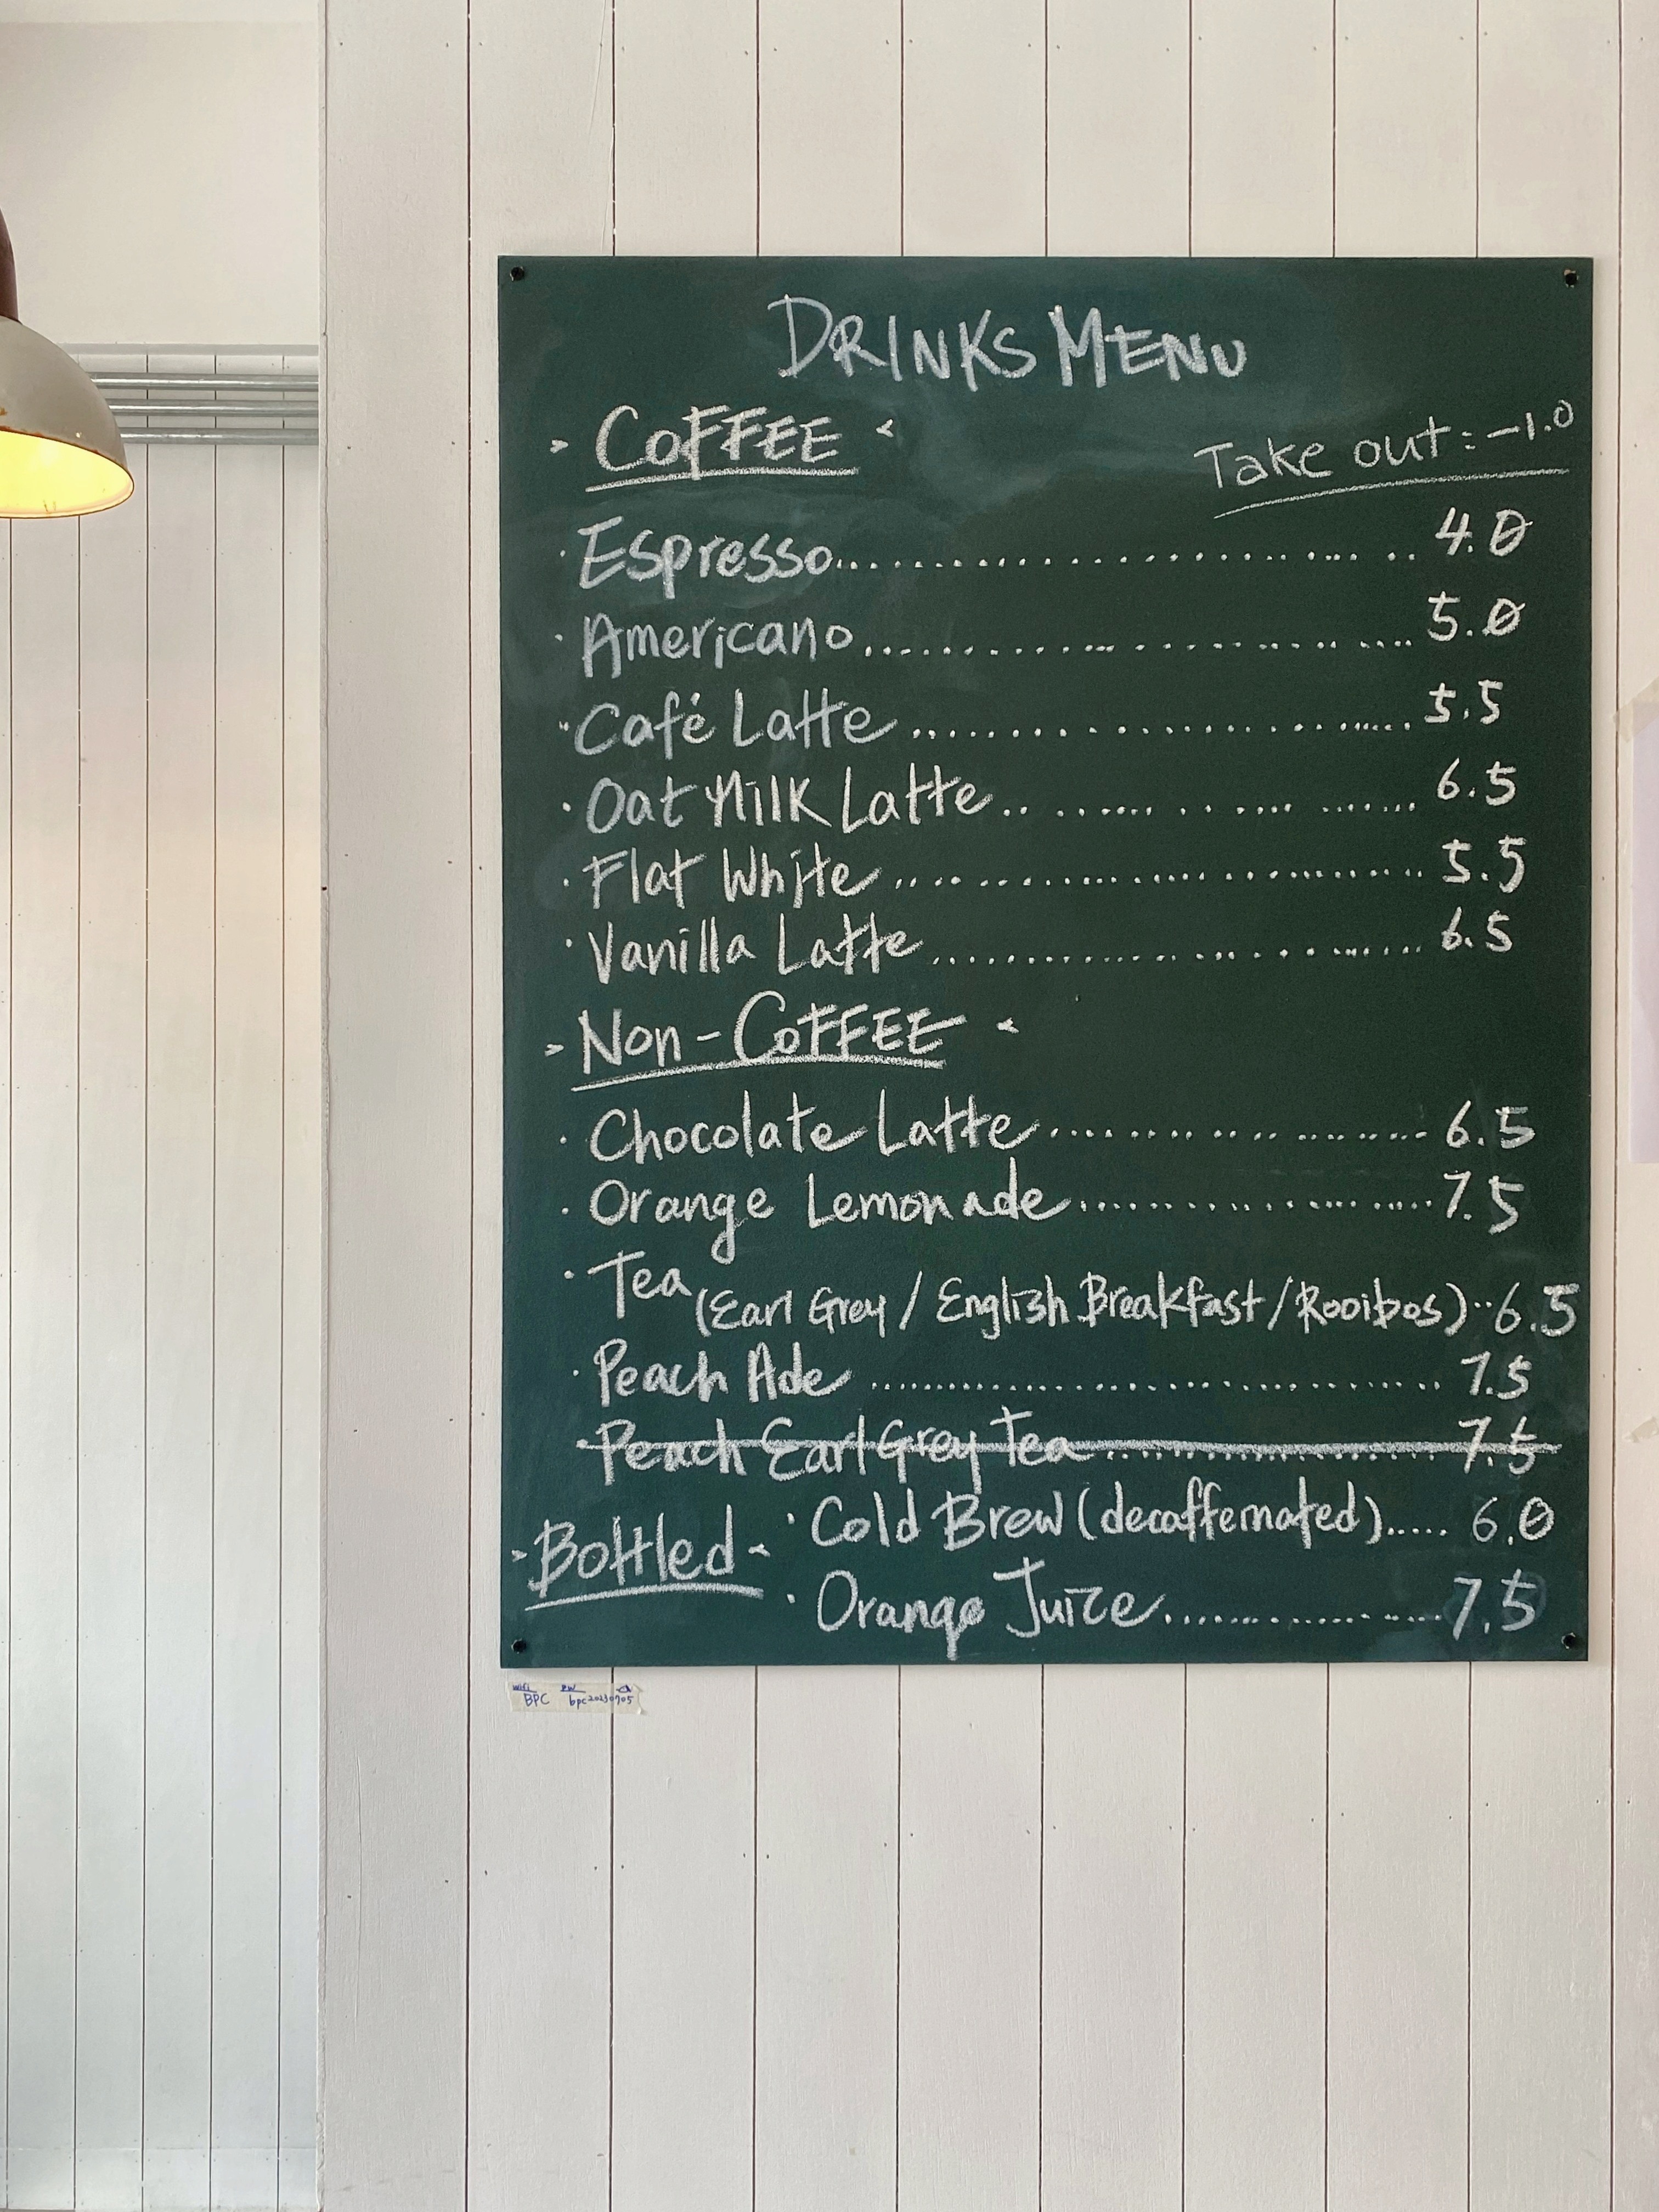 DRINKS MENU
> COFFEE <
Take out: -1.0
· Espresso .......... 4.0
· Americano .......... 5.0
· Café Latte .......... 5.5
· Oat Milk Latte .......... 6.5
· Flat White .......... 5.5
· Vanilla Latte .......... 6.5
> Non-COFFEE <
· Chocolate Latte .......... 6.5
· Orange Lemonade .......... 7.5
· Tea (Earl Grey / English Breakfast / Rooibos) .. 6.5
· Peach Ade .......... 7.5
· Peach Earl Grey Tea .......... 7.5
> Bottled <
· Cold Brew (decaffeinated) ..... 6.0
· Orange Juice .......... 7.5
wifi PW
BPC bpc20230705